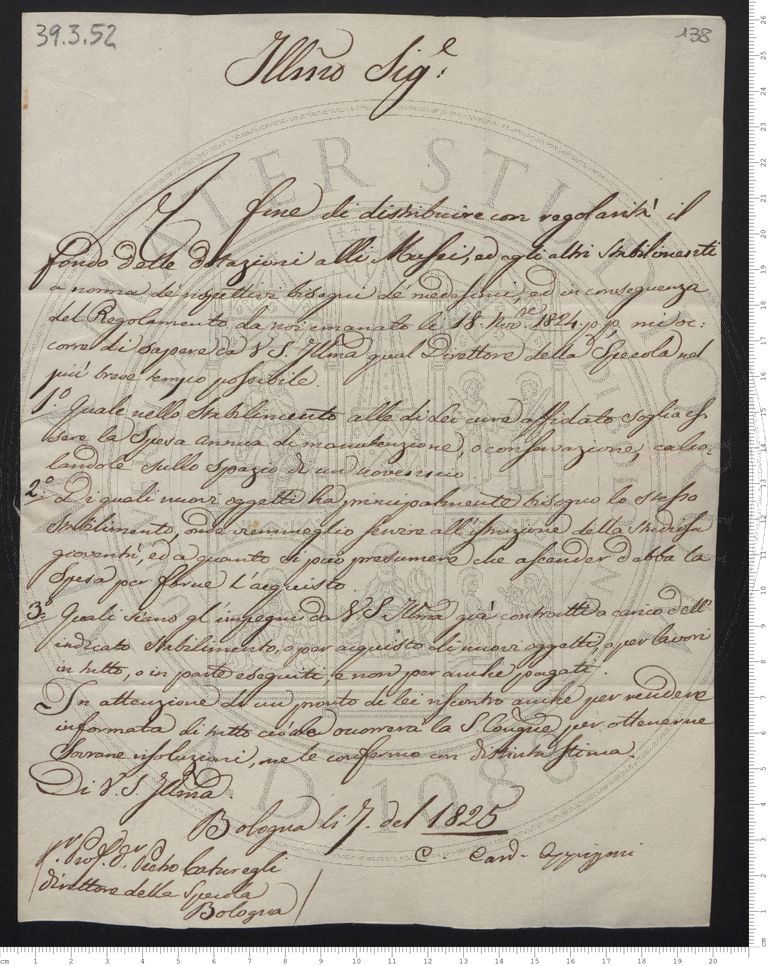 39.3.52
138
Illmo Sig.e
A fine di distribuire con regolarità il
fondo delle dotazioni alli Musei, ed agli altri Stabilimenti
a norma de' rispettivi bisogni de' medesimi, ed in conseguenza
del Regolamento da noi emanato li 18. Nov.re 1824. p.p. mi oc:
corre di sapere da V. S. Illma qual Direttore della Specola nel
più breve tempo possibile.
1.o Quale nello Stabilimento alle di Lei cure affidato soglia es
sere la Spesa annua di manutenzione, o conservazione, calco:
landola sullo spazio di un novennio
2.o Di quali nuovi oggetti ha principalmente bisogno lo stesso
Stabilimento, onde viemmeglio servire all'istruzione della Studiosa
gioventù, ed a quanto si può presumere che ascender debba la
Spesa per farne l'acquisto.
3.o Quali siano gl'impegni da V. S. Illma già contratti a carico dell'
indicato Stabilimento, o per acquisto di nuovi oggetti, o per lavori
in tutto, o in parte eseguiti e non per anche pagati.
In attenzione di un pronto di lei riscontro anche per rendere
informata di tutto ciò la S. Congne, per ottenerne
Sovrane risoluzioni, me le confermo con distinta stima.
Di V. S. Illma.
Bologna li 7. del 1825
C. Card. Oppizzoni
Sr. Prof. Dr. Pietro Caturegli
Direttore della Specola
Bologna
ALMA MATER STUDIORUM
A.D. 1088